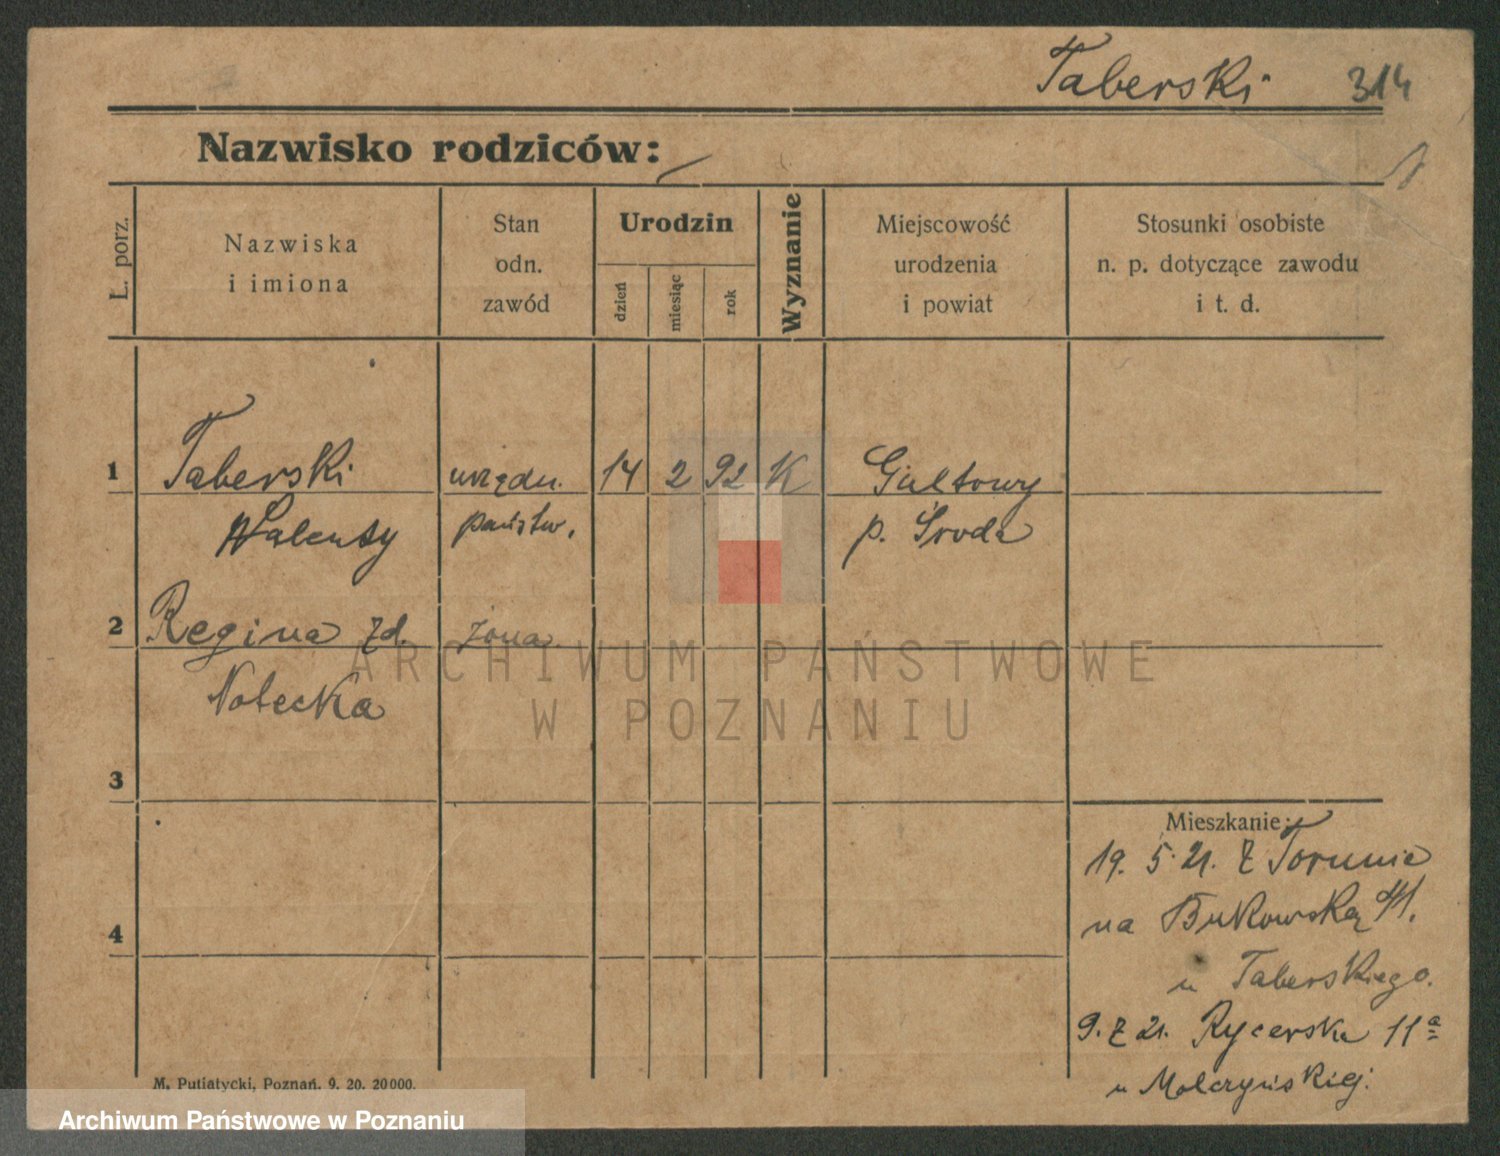 Taberski 314
Nazwisko rodziców:
L. porz.
Nazwiska
i imiona
Stan
odn.
zawód
Urodzin
dzień
miesiąc
rok
Wyznanie
Miejscowość
urodzenia
i powiat
Stosunki osobiste
n. p. dotyczące zawodu
i t. d.
1 Taberski urzędn. 14 2 92 K Giełtowy
Walenty państw. p. Środa
2 Regina zd. żona
Notecka
3
Mieszkanie:
19. 5. 21. z Torunia
na Bukowską
4
u Taberskiego.
9. 7 21. Rycerska 11a
u
M. Putiatycki, Poznań. 9. 20. 20000.
ARCHIWUM PAŃSTWOWE
W POZNANIU
Archiwum Państwowe w Poznaniu